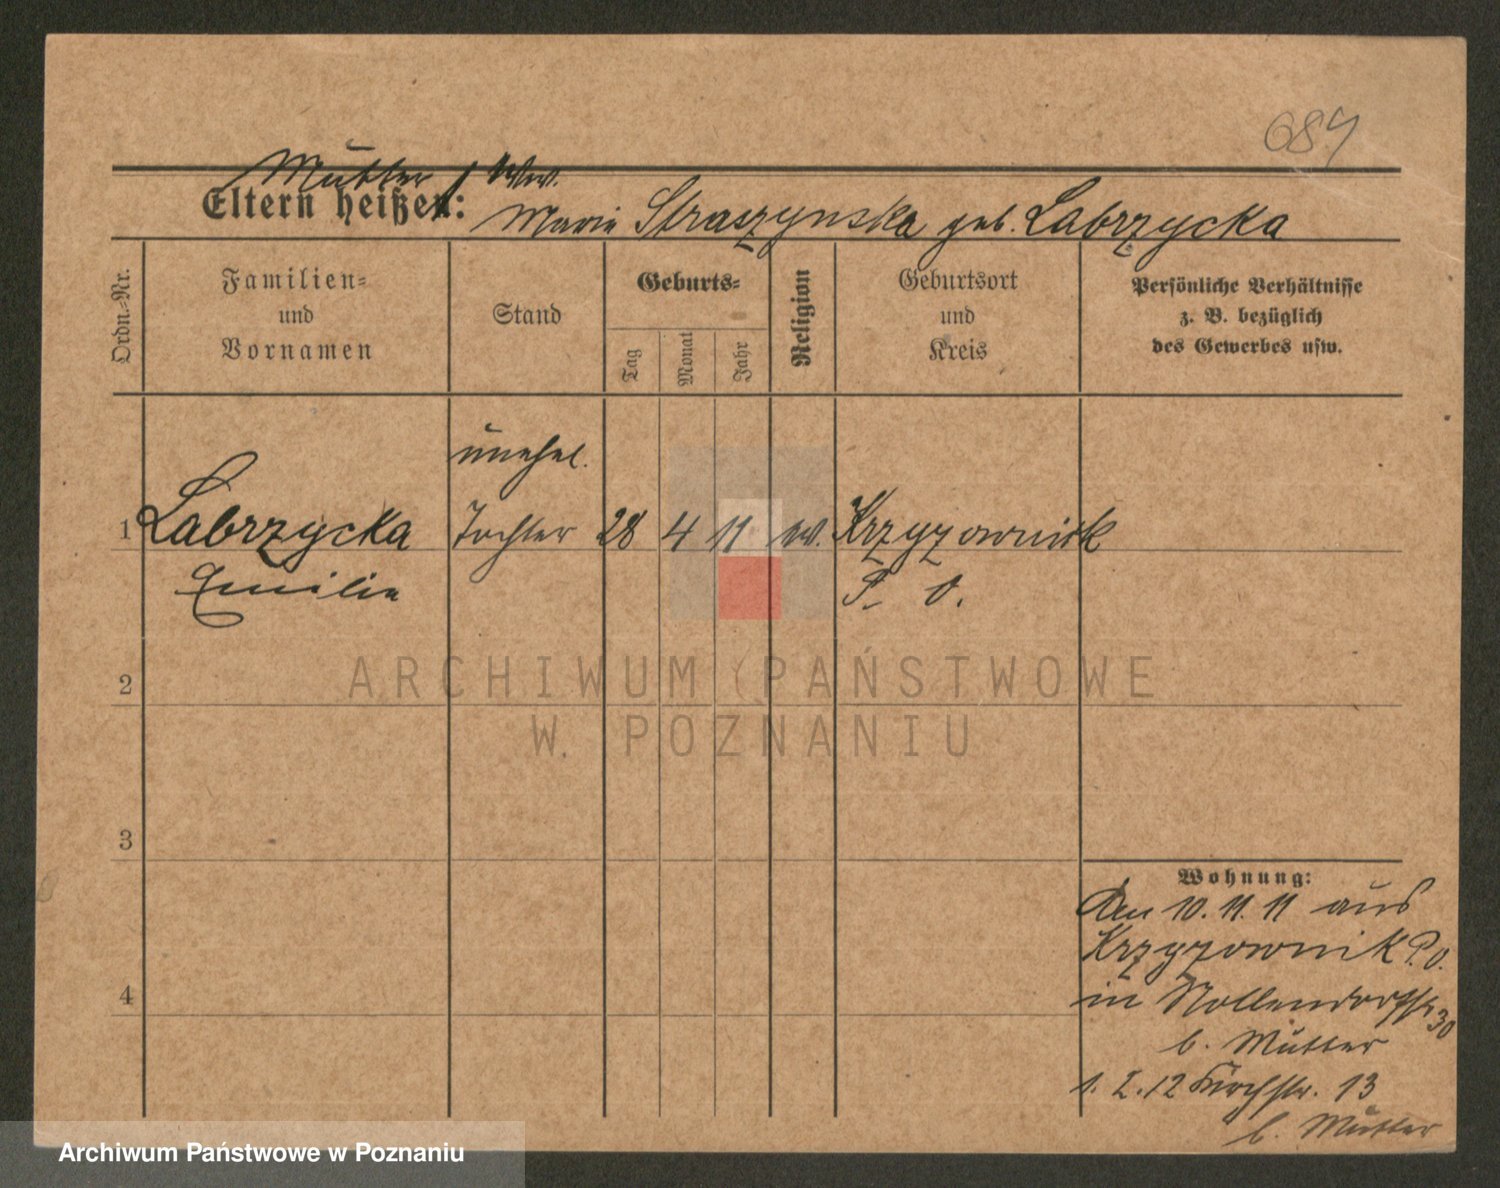 684
Mutter / Ww.
Eltern heißen: Marie Straszynska geb. Labrzycka
Ordn.-Nr.
Familien- und Vornamen
Stand
Geburts-
Tag
Monat
Jahr
Religion
Geburtsort und Kreis
Persönliche Verhältnisse
z. B. bezüglich
des Gewerbes usw.
unehel.
1 Labrzycka Tochter 28 4 11 Krzyzownik
Emilie P. O.
2
ARCHIWUM PAŃSTWOWE
W POZNANIU
3
Wohnung:
Den 10. 11. 11 aus
Krzyzownik P. O.
4
in Nollendorfstr 30
b. Mutter
1. I. 12 Kirchstr. 13
b. Mutter
Archiwum Państwowe w Poznaniu